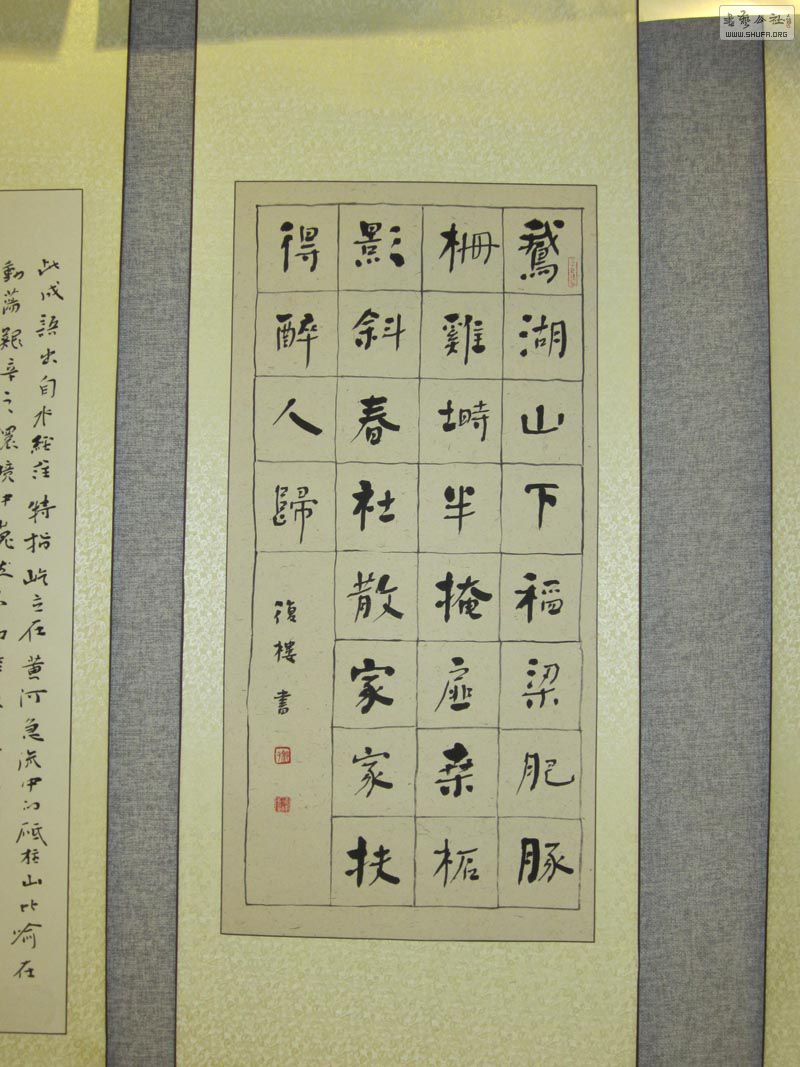 書藝公社
WWW.SHUFA.ORG
鵞湖山下稻梁肥豚
柵雞塒半掩扉桑柘
影斜春社散家家扶
得醉人歸
復樓書
此成語出自水經注特指屹立在黄河急流中的砥柱山比喻在
動蕩艱辛之環境中巍然不